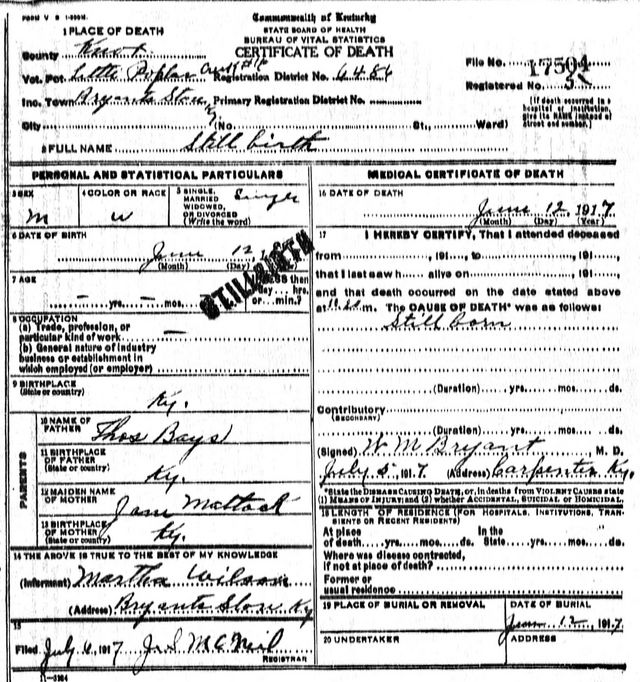 FORM V S 1-
Commonwealth of Kentucky
STATE BOARD OF HEALTH
BUREAU OF VITAL STATISTICS
CERTIFICATE OF DEATH
1 PLACE OF DEATH
County Knox
Vot. Pct Little Poplar Registration District No. 6486
Inc. Town Bryants Store Primary Registration District No.
City No. St., Ward)
File No. 17504
Registered No. 5
(If death occurred in a
hospital or institution,
give its NAME instead of
street and number.)
2 FULL NAME Still birth
PERSONAL AND STATISTICAL PARTICULARS
3 SEX M
4 COLOR OR RACE W
5 SINGLE,
MARRIED
WIDOWED,
OR DIVORCED
(Write the word) Single
6 DATE OF BIRTH
June 12, 191
(Month) (Day)
STILLBIRTH
7 AGE
LESS then
day hrs.
— yrs. — mos. or min.?
8 OCCUPATION
(a) Trade, profession, or
particular kind of work —
(b) General nature of industry
business or establishment in
which employed (or employer)
9 BIRTHPLACE
(State or country) Ky.
PARENTS
10 NAME OF
FATHER Thos Bays
11 BIRTHPLACE
OF FATHER
(State or country) Ky.
12 MAIDEN NAME
OF MOTHER Jane Mattock
13 BIRTHPLACE
OF MOTHER
(State or country) Ky.
14 THE ABOVE IS TRUE TO THE BEST OF MY KNOWLEDGE
(Informant) Martha Wilson
(Address) Bryants Store Ky
15
Filed July 6, 1917 J. S. McNeil
REGISTRAR
11-3184
MEDICAL CERTIFICATE OF DEATH
16 DATE OF DEATH
June 12, 1917
(Month) (Day) (Year)
17 I HEREBY CERTIFY, That I attended deceased
from , 191 , to , 191 ,
that I last saw h alive on , 191 ,
and that death occurred on the date stated above
at m. The CAUSE OF DEATH* was as follows:
Still born
(Duration) yrs. mos. ds.
Contributory
(SECONDARY)
(Duration) yrs. mos. ds.
(Signed) W M Bryant, M. D.
July 5, 1917 (Address) Carpenter Ky.
*State the DISEASE CAUSING DEATH, or, in deaths from VIOLENT CAUSES state
(1) MEANS OF INJURY; and (2) whether ACCIDENTAL, SUICIDAL or HOMICIDAL.
18 LENGTH OF RESIDENCE (FOR HOSPITALS, INSTITUTIONS, TRANSIENTS OR RECENT RESIDENTS)
At place In the
of death yrs. mos. ds. State yrs. mos. ds.
Where was disease contracted,
if not at place of death?
Former or
usual residence
19 PLACE OF BURIAL OR REMOVAL
DATE OF BURIAL
June 12, 1917
20 UNDERTAKER
ADDRESS